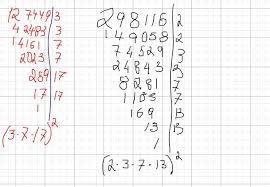 127449 | 3
42483 | 3
14161 | 7
2023 | 7
289 | 17
17 | 17
1
(3·7·17)²
298116 | 2
149058 | 2
74529 | 3
24843 | 3
8281 | 7
1183 | 7
169 | 13
13 | 13
1
(2·3·7·13)²